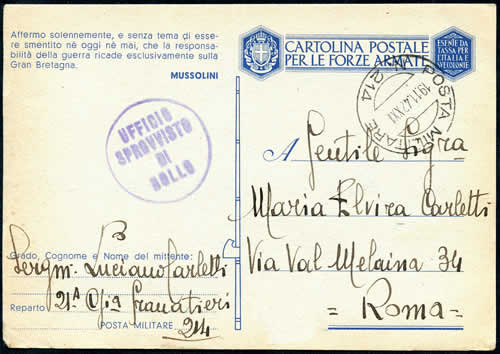 Affermo solennemente, e senza tema di esse-
re smentito nè oggi nè mai, che la responsa-
bilità della guerra ricade esclusivamente sulla
Gran Bretagna.
MUSSOLINI
CARTOLINA POSTALE
PER LE FORZE ARMATE
ESENTE DA
TASSA PER
L'ITALIA E
SVE COLONIE
POSTA MILITARE N. 214
19.11.42.XXI
UFFICIO
SPROVVISTO
DI
BOLLO
A Gentile Sig.ra
Maria Elvira Carletti
Via Val Melaina 34
= Roma =
Grado, Cognome e Nome del mittente:
Serg. m. Luciano Carletti
Reparto 21ª C/ia Granatieri
POSTA MILITARE 214